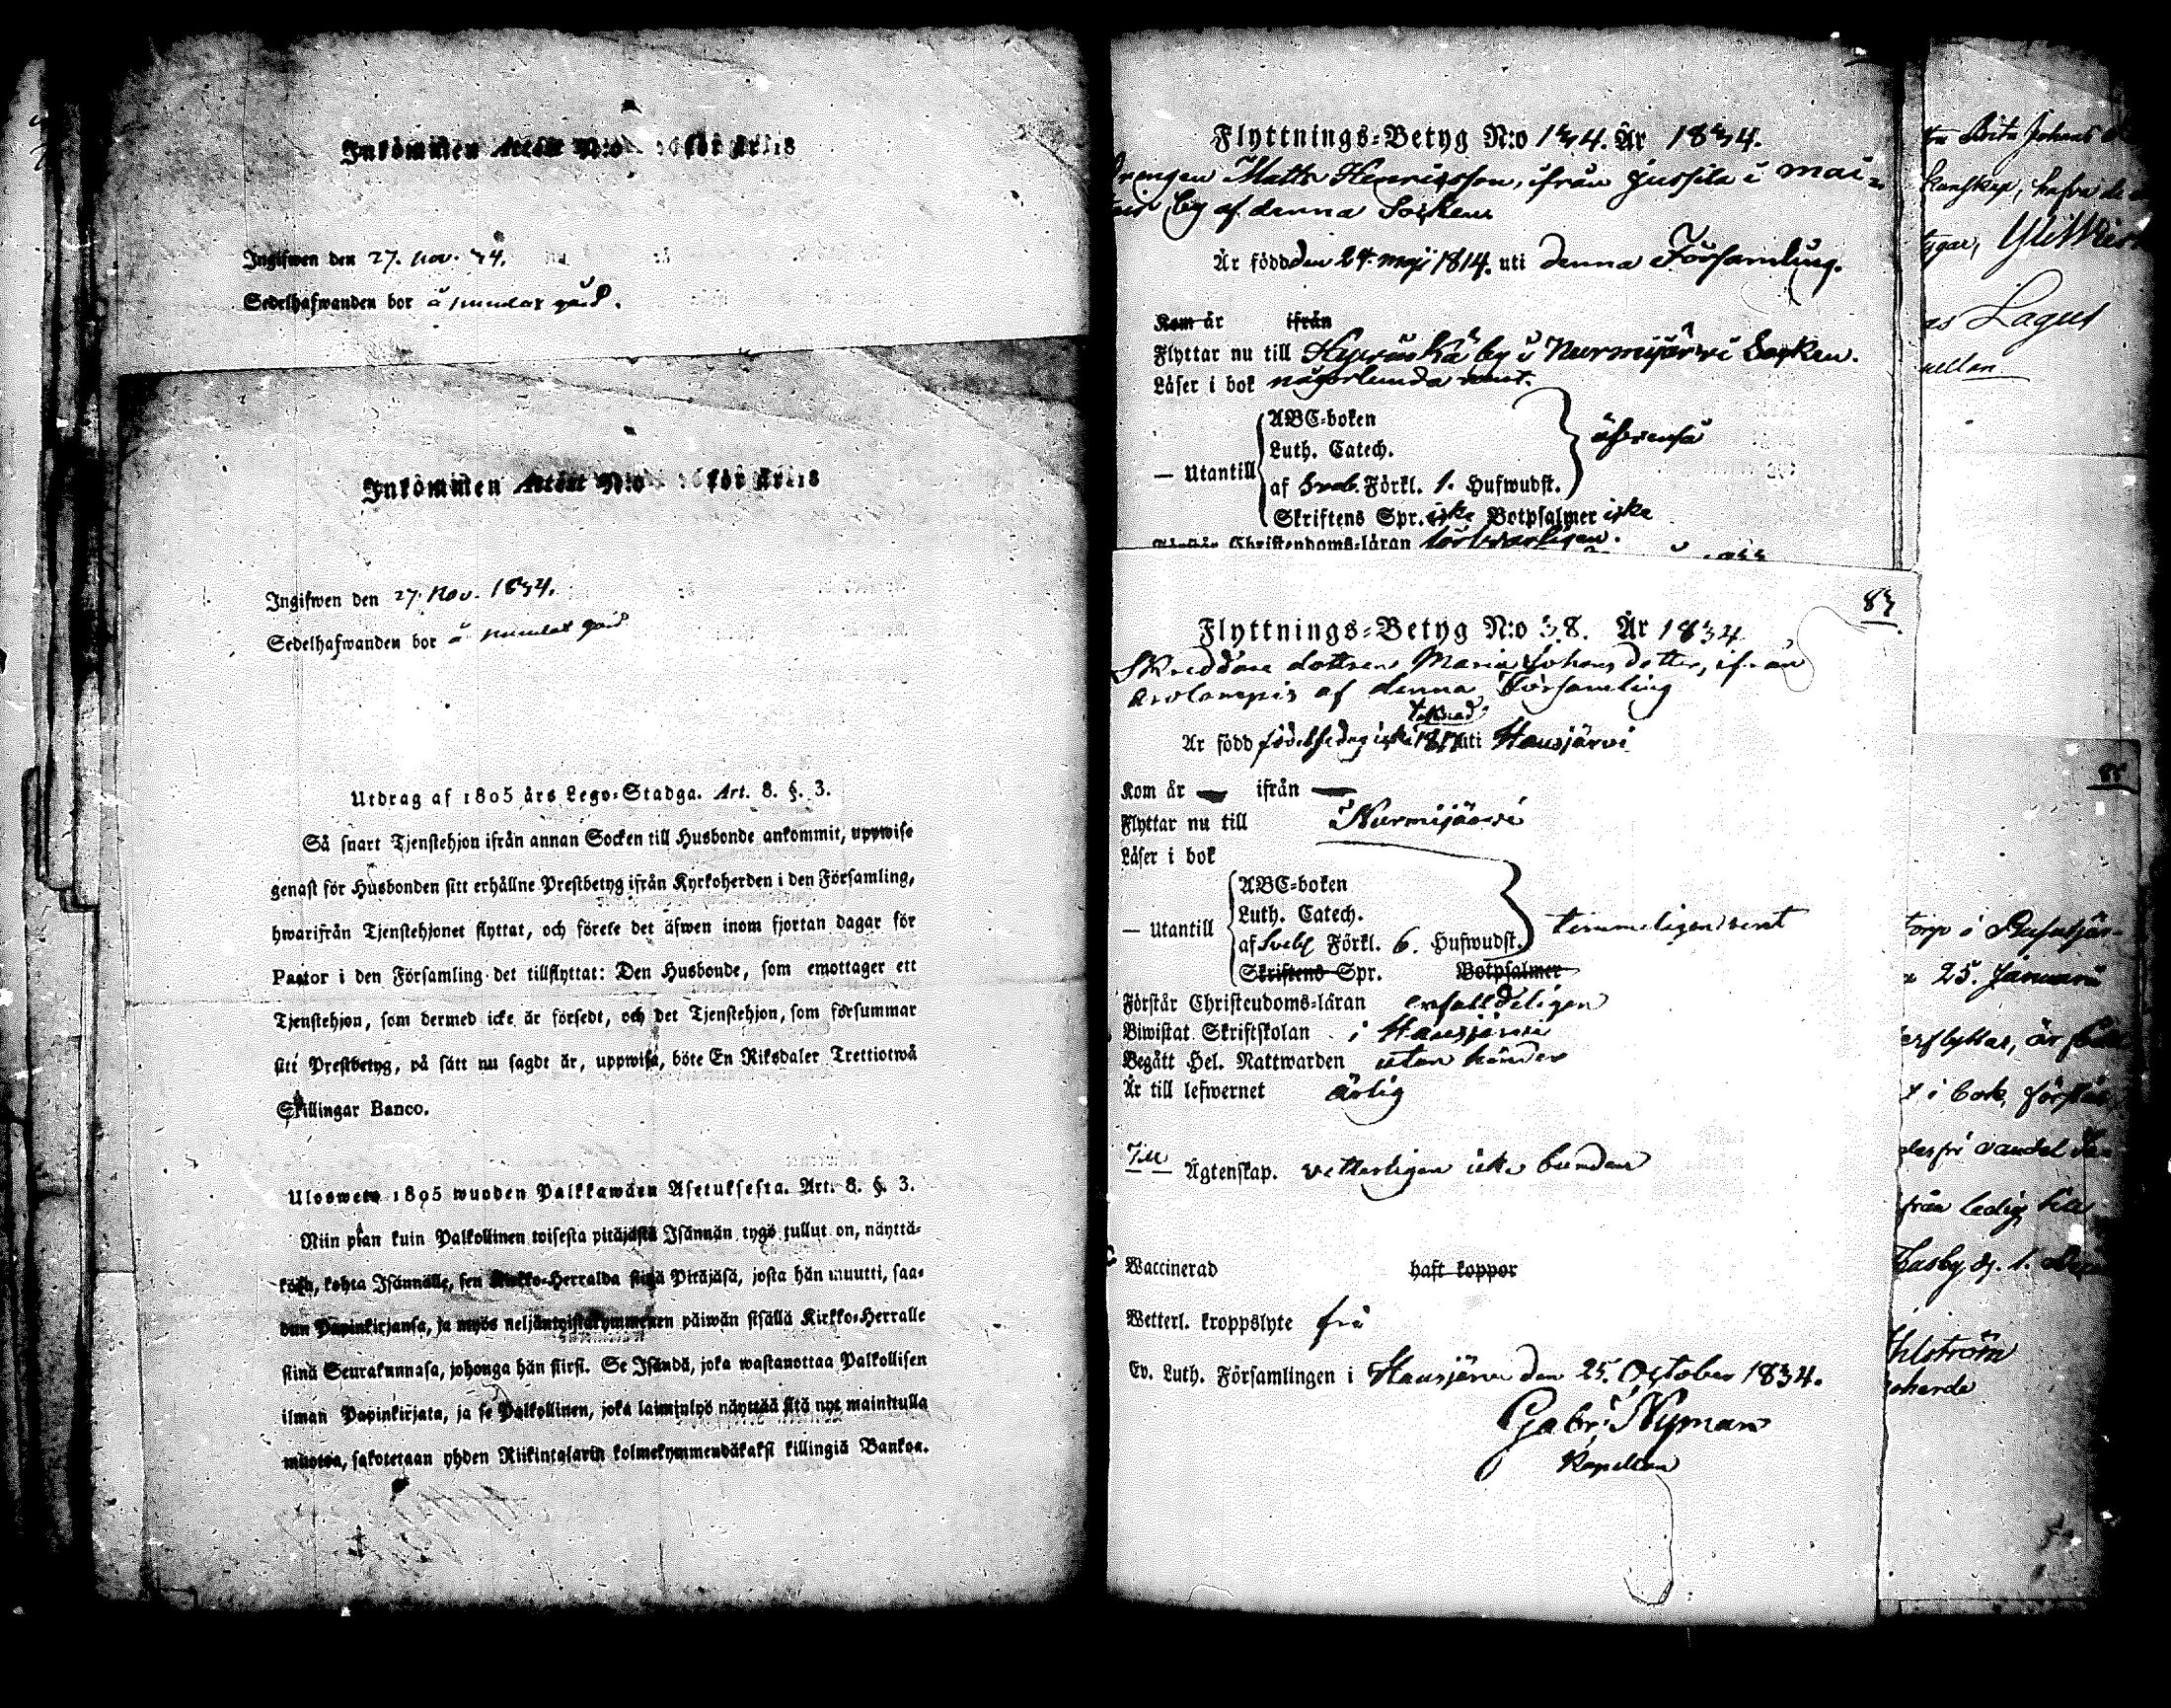 Inkommen Attest N:o för år 18
Ingifwen den 27. Nov. 34.
Sedelhafwanden bor å gård.
Inkommen Attest N:o för år 18
Ingifwen den 27. Nov. 1834.
Sedelhafwanden bor å gård
Utdrag af 1805 års Lego-Stadga. Art. 8. §. 3.
Så snart Tjenstehjon ifrån annan Socken till Husbonde ankommit, uppwise
genast för Husbonden sitt erhållne Prestbetyg ifrån Kyrkoherden i den Församling,
hwarifrån Tjenstehjonet flyttat, och förete det äfwen inom fjortan dagar för
Pastor i den Församling det tillflyttat: Den Husbonde, som emottager ett
Tjenstehjon, som dermed icke är försedt, och det Tjenstehjon, som försummar
sitt Prestbetyg, på sätt nu sagdt är, uppwisa, böte En Riksdaler Trettiotwå
Skillingar Banco.
Ulosweto 1805 wuoden Palkkawäen Asetuksesta. Art. 8. §. 3.
Niin pian kuin Palkollinen toisesta pitäjästä Isännän tygö tullut on, näyttä-
kään, kohta Isännälle, sen Kirkko-Herralda siinä Pitäjäsä, josta hän muutti, saa-
dun Papinkirjansa, ja myös neljäntoistakymmenen päiwän sisällä Kirkko-Herralle
siinä Seurakunnasa, johonga hän siirsi. Se Isändä, joka wastanottaa Palkollisen
ilman Papinkirjata, ja se Palkollinen, joka laiminlyö näyttää sitä nyt mainitulla
muotoa, sakotetaan yhden Riikintalarin kolmekymmendäkaksi killingiä Bankoa.
Flyttnings-Betyg N:o 134. År 1834.
Drengen Matts Henricsson, ifrån Jussila i Mai-
by af denna Socken
Är född den 24 maji 1814. uti denna Församling.
Kom år ifrån
Flyttar nu till by i Nurmijärvi Socken.
Läser i bok någorlunda rent.
ABC-boken
Luth. Catech.
— Utantill
af Sveb. Förkl. 1. Hufwudst.
äfvenså
Skriftens Spr. icke Botpsalmer icke
Förstår Christendoms-läran försvarligen.
83
Flyttnings-Betyg N:o 38. År 1834
Skreddare dottren Maria Johans dotter, ifrån
Arolampis af denna Församling
tecknad
Är född födelsedag icke 1817 uti Hausjärvi
Kom år — ifrån —
Flyttar nu till Nurmijärvi
Läser i bok
ABC-boken
Luth. Catech.
— Utantill
af Sveb. Förkl. 6. Hufwudst.
temmeligen rent
Skriftens Spr. Botpsalmer
Förstår Christendoms-läran enfalldeligen
Biwistat Skriftskolan i Hausjärvi
Begått Hel. Nattwarden utan hinder
Är till lefwernet ärlig
Till Ägtenskap. vetterligen icke bunden
Waccinerad haft koppor
Wetterl. kroppslyte fri
Ev. Luth. Församlingen i Hausjärvi den 25. October 1834.
Gabr. Nyman
Kapellan
Brita Johans
kunskap, hafva de
Lagus
85
torp i
25. Januari
i bok, förstår
från ledig
hlström
oherde